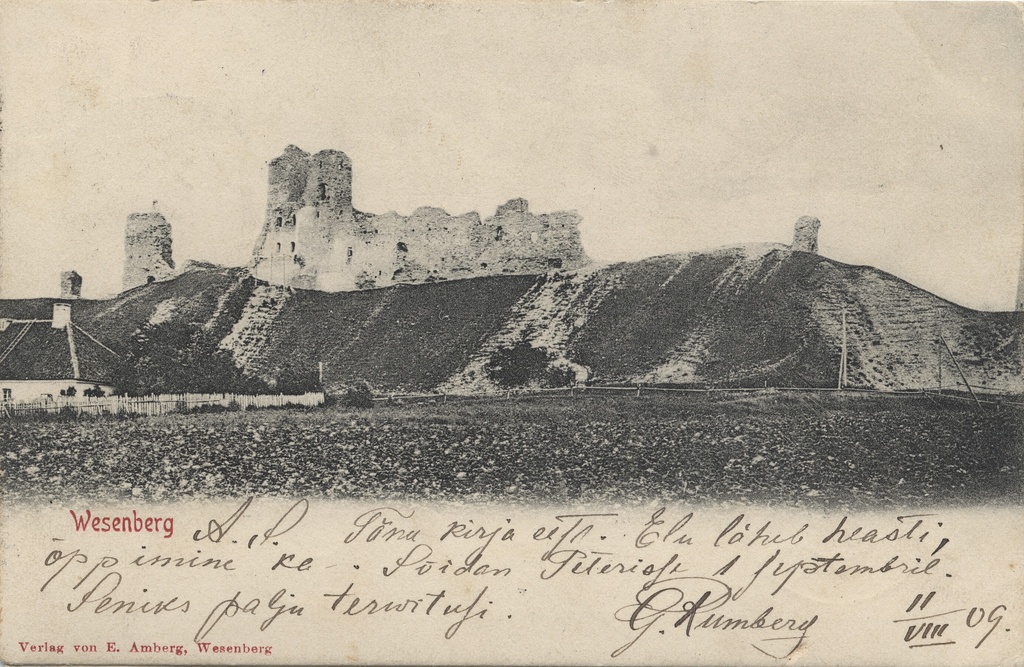 Wesenberg
A. S. Tänu kirja eest. Elu läheb heasti,
õppimine ka -. Sõidan Peterisse 1 septembril.
Seniks palju terwitusi. G. Rumberg 11/VIII 09.
Verlag von E. Amberg, Wesenberg